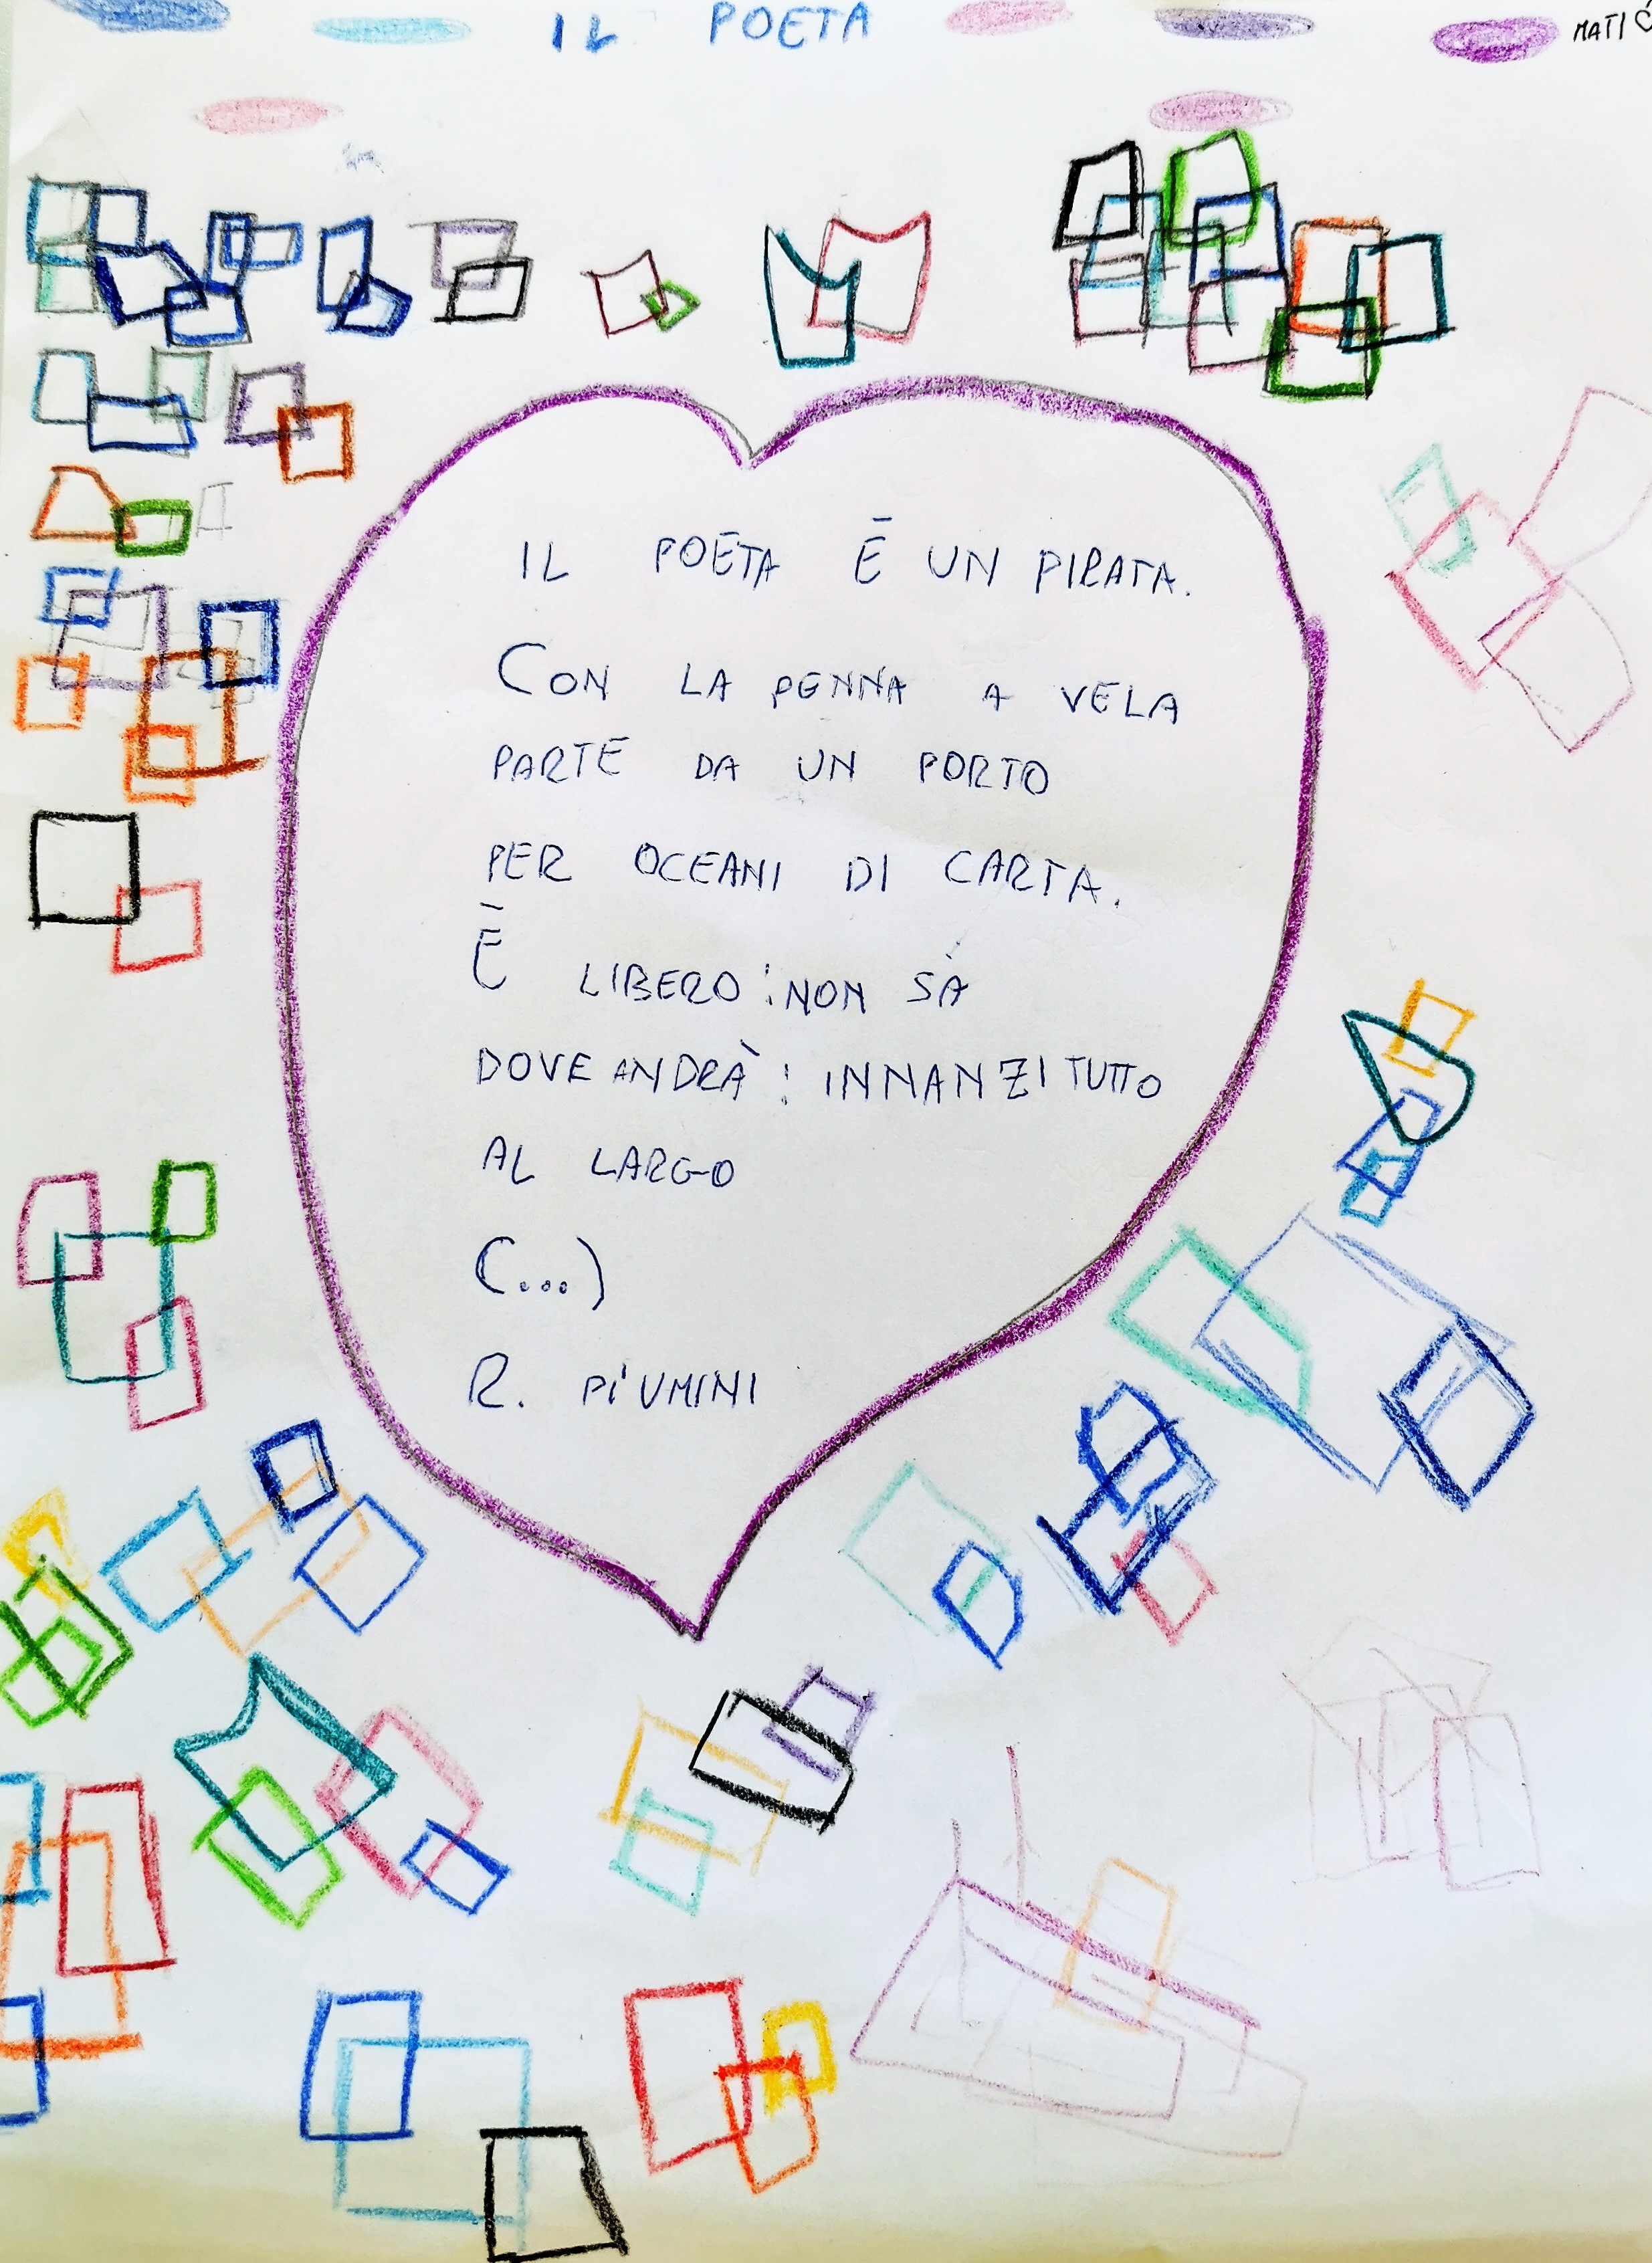 IL POETA
MATI
IL POETA È UN PIRATA.
CON LA PENNA A VELA
PARTE DA UN PORTO
PER OCEANI DI CARTA.
È LIBERO: NON SÀ
DOVE ANDRÀ: INNANZI TUTTO
AL LARGO
(...)
R. PIUMINI